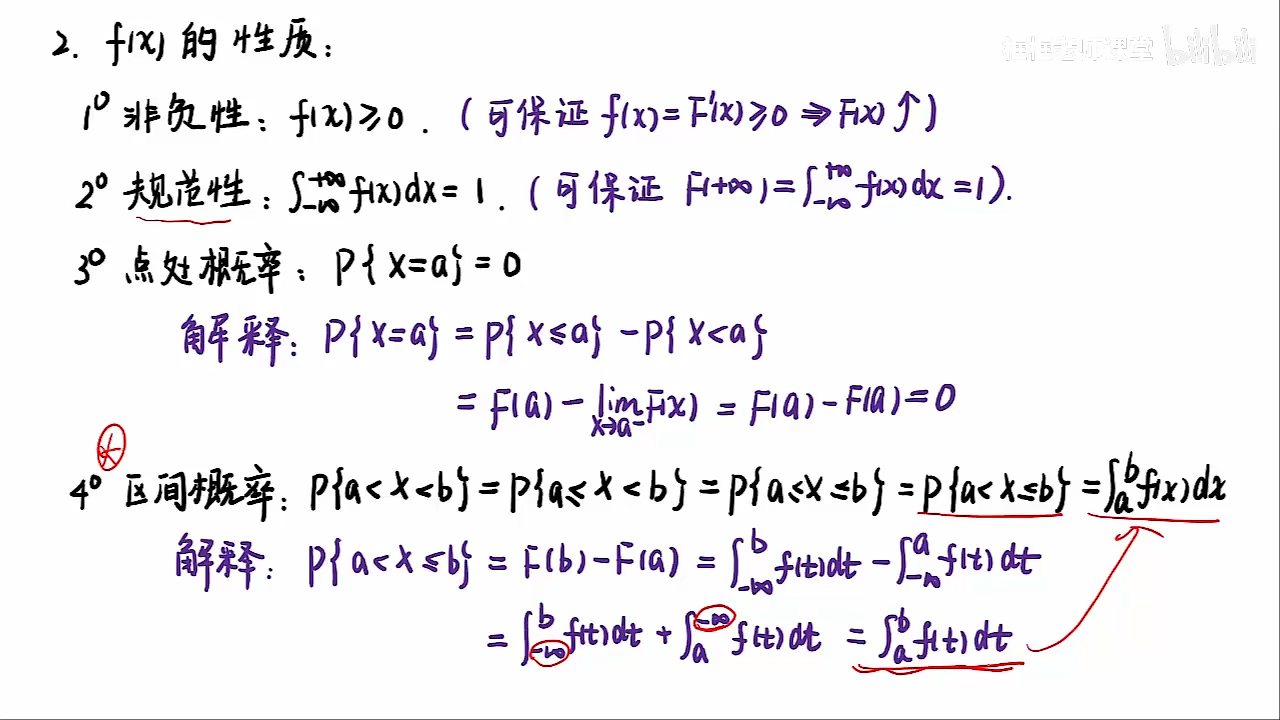 2. f(x) 的性质：
框框老师课堂 bilibili
1⁰ 非负性：f(x)≥0．(可保证 f(x)=F'(x)≥0 ⇒ F(x)↑)
2⁰ 规范性：∫_{-∞}^{+∞} f(x)dx = 1．(可保证 F(+∞)=∫_{-∞}^{+∞} f(x)dx=1).
3⁰ 点处概率：P{X=a}=0
解释：P{X=a} = P{X≤a} - P{X<a}
= F(a) - lim_{x→a⁻} F(x) = F(a) - F(a) = 0
4⁰ 区间概率：P{a<X<b} = P{a≤X<b} = P{a≤X≤b} = P{a<X≤b} = ∫_a^b f(x)dx
解释：P{a<X≤b} = F(b)-F(a) = ∫_{-∞}^b f(t)dt - ∫_{-∞}^a f(t)dt
= ∫_{-∞}^b f(t)dt + ∫_a^{-∞} f(t)dt = ∫_a^b f(t)dt